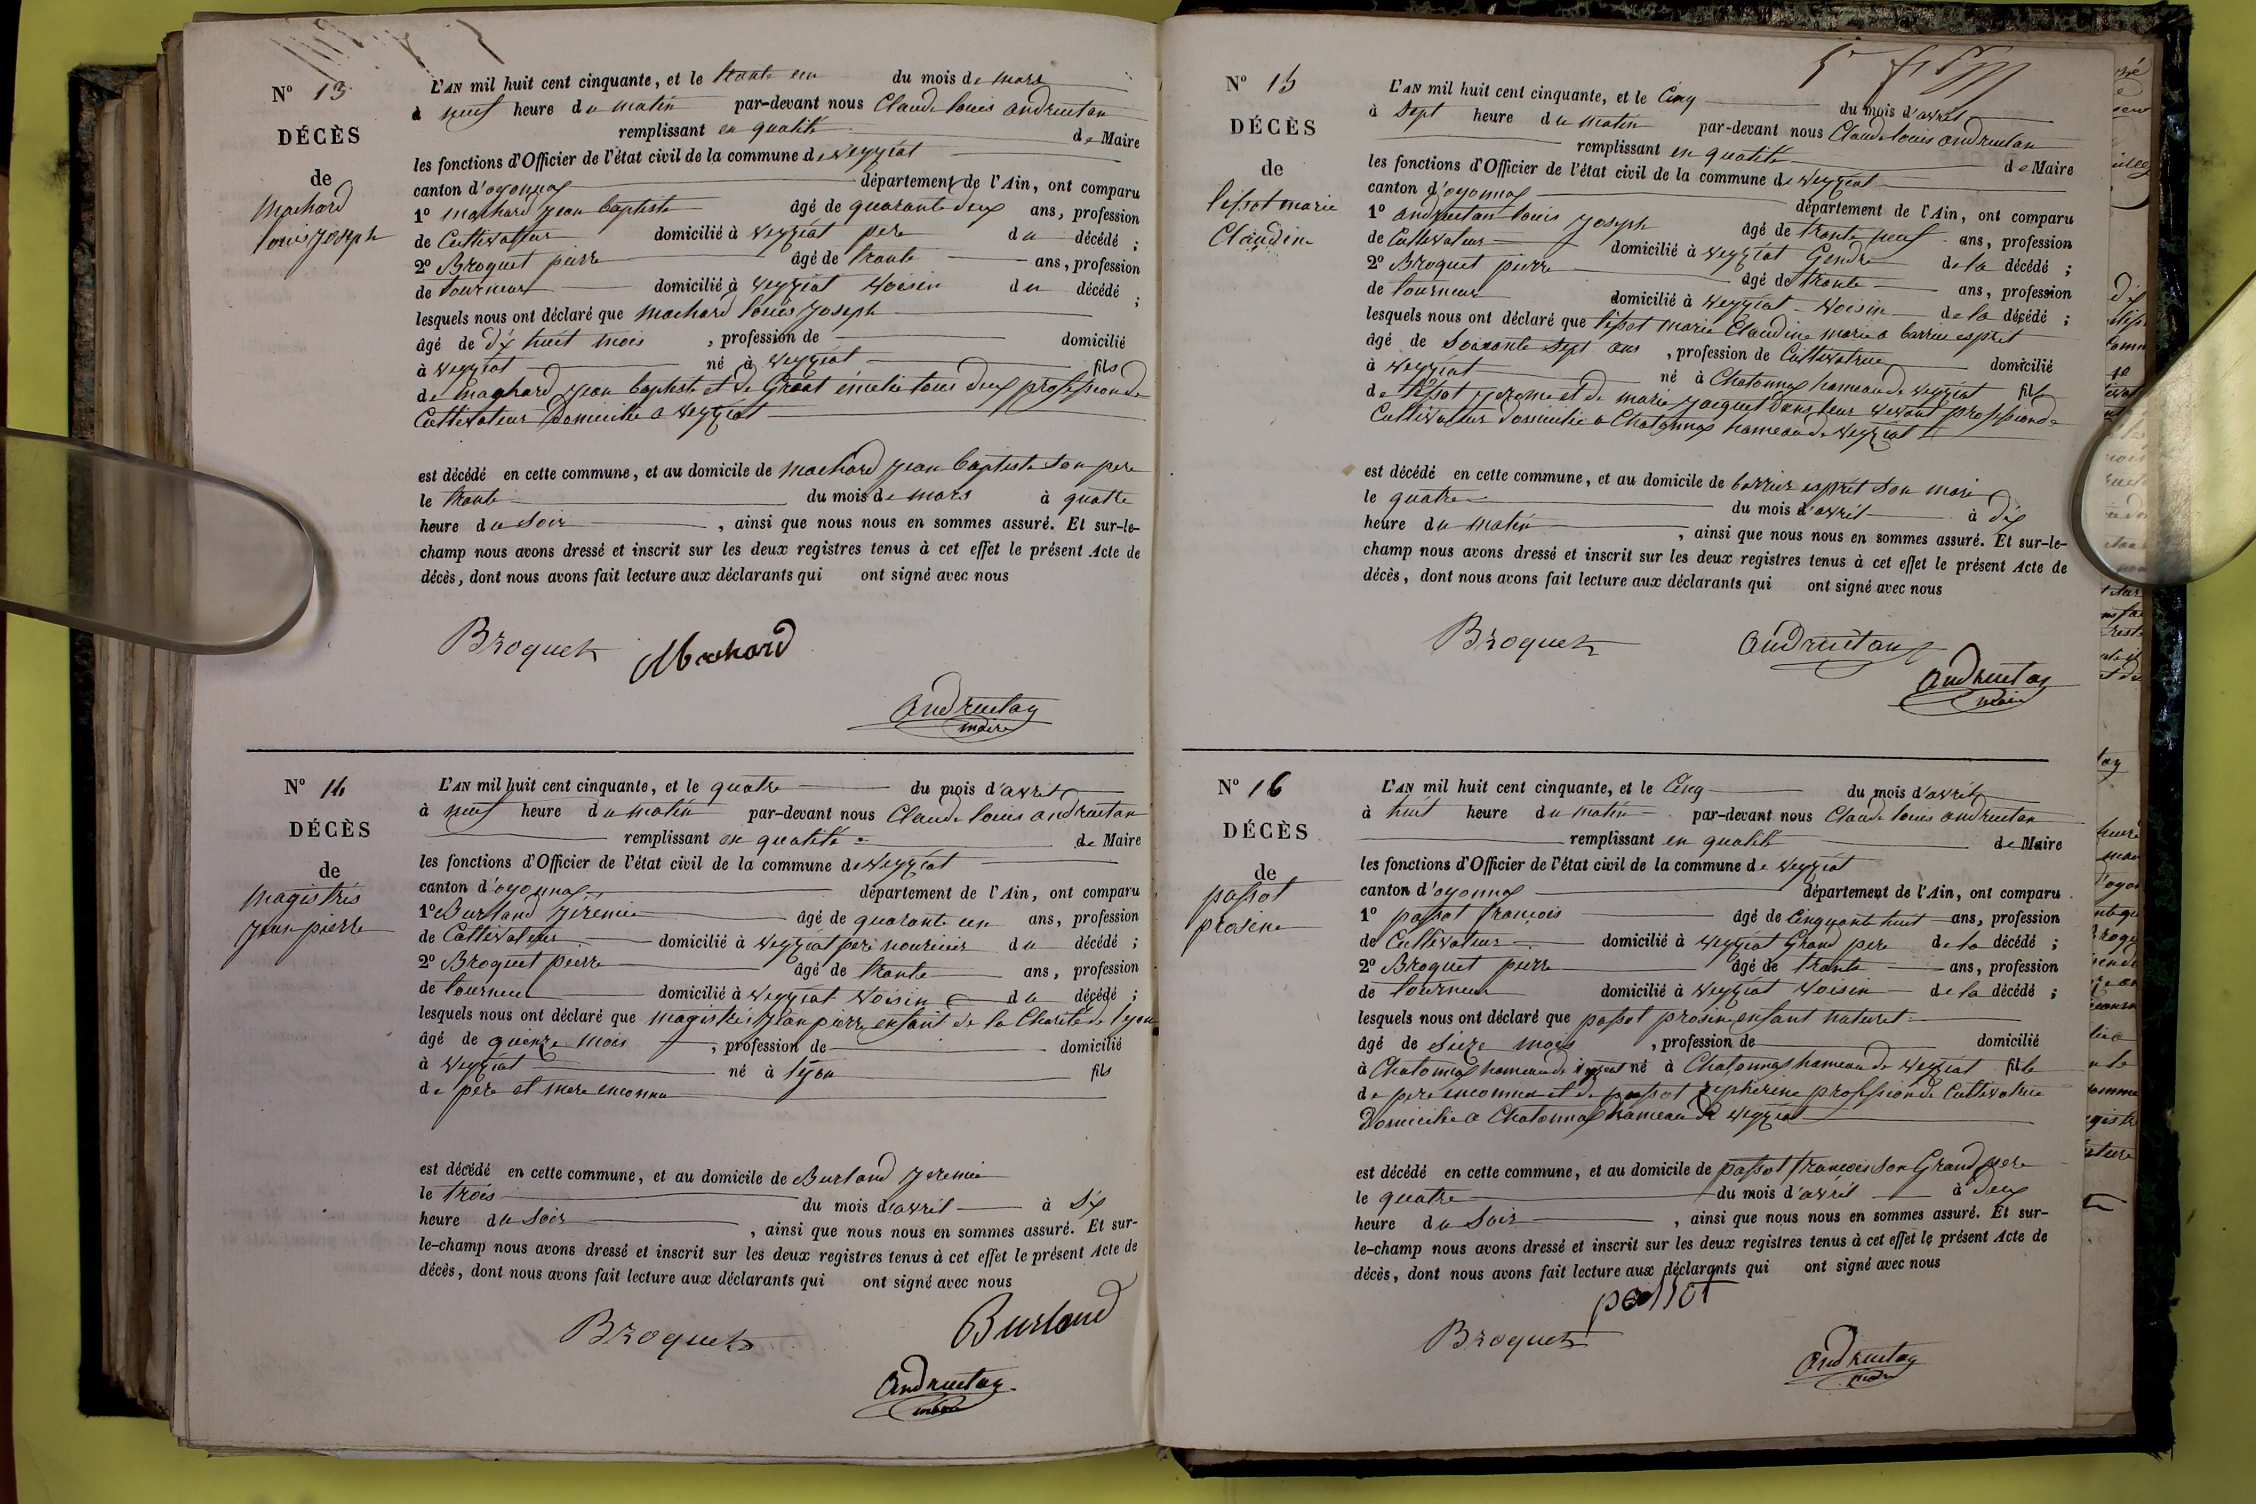 N° 13
DÉCÈS
de
Machard
louis joseph
L'AN mil huit cent cinquante, et le trante un du mois de mars
à neuf heure du matin par-devant nous Claude louis andruetan
remplissant en qualité de Maire
les fonctions d'Officier de l'état civil de la commune de veyziat
canton d'oyonnax département de l'Ain, ont comparu
1° machard jean baptiste âgé de quarante deux ans, profession
de Cultivateur domicilié à veyziat pere du décédé ;
2° Broquet pierre âgé de trante ans, profession
de tourneur domicilié à veyziat voisin du décédé ;
lesquels nous ont déclaré que machard louis joseph
âgé de dix huit mois , profession de domicilié
à veyziat né à veyziat fils
de machard jean baptiste et de Groat émelie tous deux profession de
Cultivateur domicilié a veyziat
est décédé en cette commune, et au domicile de machard jean baptiste son pere
le trante du mois de mars à quatre
heure du soir , ainsi que nous nous en sommes assuré. Et sur-le-
champ nous avons dressé et inscrit sur les deux registres tenus à cet effet le présent Acte de
décès, dont nous avons fait lecture aux déclarants qui ont signé avec nous
Broquet Machard
andruetan
maire
N° 14
DÉCÈS
de
magistris
jean pierre
L'AN mil huit cent cinquante, et le quatre du mois d'avril
à neuf heure du matin par-devant nous Claude louis andruetan
remplissant en qualité de Maire
les fonctions d'Officier de l'état civil de la commune de veyziat
canton d'oyonnax département de l'Ain, ont comparu
1° Burland jéremie âgé de quarante un ans, profession
de Cultivateur domicilié à veyziat pere nouricier du décédé ;
2° Broquet pierre âgé de trante ans, profession
de tourneur domicilié à veyziat voisin du décédé ;
lesquels nous ont déclaré que magistris jean pierre enfant de la Charité de lyon
âgé de quinze mois , profession de domicilié
à veyziat né à lyon fils
de pere et mere inconnu
est décédé en cette commune, et au domicile de Burland jeremie
le trois du mois d'avril à six
heure du soir , ainsi que nous nous en sommes assuré. Et sur-
le-champ nous avons dressé et inscrit sur les deux registres tenus à cet effet le présent Acte de
décès, dont nous avons fait lecture aux déclarants qui ont signé avec nous
Broquet Burland
andruetan
maire
N° 15
DÉCÈS
de
lissot marie
Claudine
L'AN mil huit cent cinquante, et le Cinq du mois d'avril
à sept heure du matin par-devant nous Claude louis andruetan
remplissant en qualité de Maire
les fonctions d'Officier de l'état civil de la commune de veyziat
canton d'oyonnax département de l'Ain, ont comparu
1° andruetan louis joseph âgé de trante neuf ans, profession
de Cultivateur domicilié à veyziat Gendre de la décédé ;
2° Broquet pierre âgé de trante ans, profession
de tourneur domicilié à veyziat voisin de la décédé ;
lesquels nous ont déclaré que lissot marie Claudine marie a barrier esprit
âgé de soixante sept ans , profession de Cultivatrice domicilié
à veyziat né à Chatonnax hameau de veyziat fille
de lissot jerome et de marie jacquet dans leur vivant profession de
Cultivateur domicilié a Chatonnax hameau de veyziat
est décédé en cette commune, et au domicile de barrier esprit son mari
le quatre du mois d'avril à dix
heure du matin , ainsi que nous nous en sommes assuré. Et sur-le-
champ nous avons dressé et inscrit sur les deux registres tenus à cet effet le présent Acte de
décès, dont nous avons fait lecture aux déclarants qui ont signé avec nous
Broquet andruetan
andruetan
maire
N° 16
DÉCÈS
de
passot
prosine
L'AN mil huit cent cinquante, et le Cinq du mois d'avril
à huit heure du matin par-devant nous Claude louis andruetan
remplissant en qualité de Maire
les fonctions d'Officier de l'état civil de la commune de veyziat
canton d'oyonnax département de l'Ain, ont comparu
1° passot francois âgé de Cinquante huit ans, profession
de Cultivateur domicilié à veyziat Grand pere de la décédé ;
2° Broquet pierre âgé de trante ans, profession
de tourneur domicilié à veyziat voisin de la décédé ;
lesquels nous ont déclaré que passot prosine enfant naturel
âgé de sieze mois , profession de domicilié
à Chatonnax hameau de veyziat né à Chatonnax hameau de veyziat fille
de pere inconnu et de passot zepherine profession de Cultivatrice
Domicilié a Chatonnax hameau de veyziat
est décédé en cette commune, et au domicile de passot francois son Grand pere
le quatre du mois d'avril à deux
heure du soir , ainsi que nous nous en sommes assuré. Et sur-
le-champ nous avons dressé et inscrit sur les deux registres tenus à cet effet le présent Acte de
décès, dont nous avons fait lecture aux déclarants qui ont signé avec nous
passot
Broquet
andruetan
maire